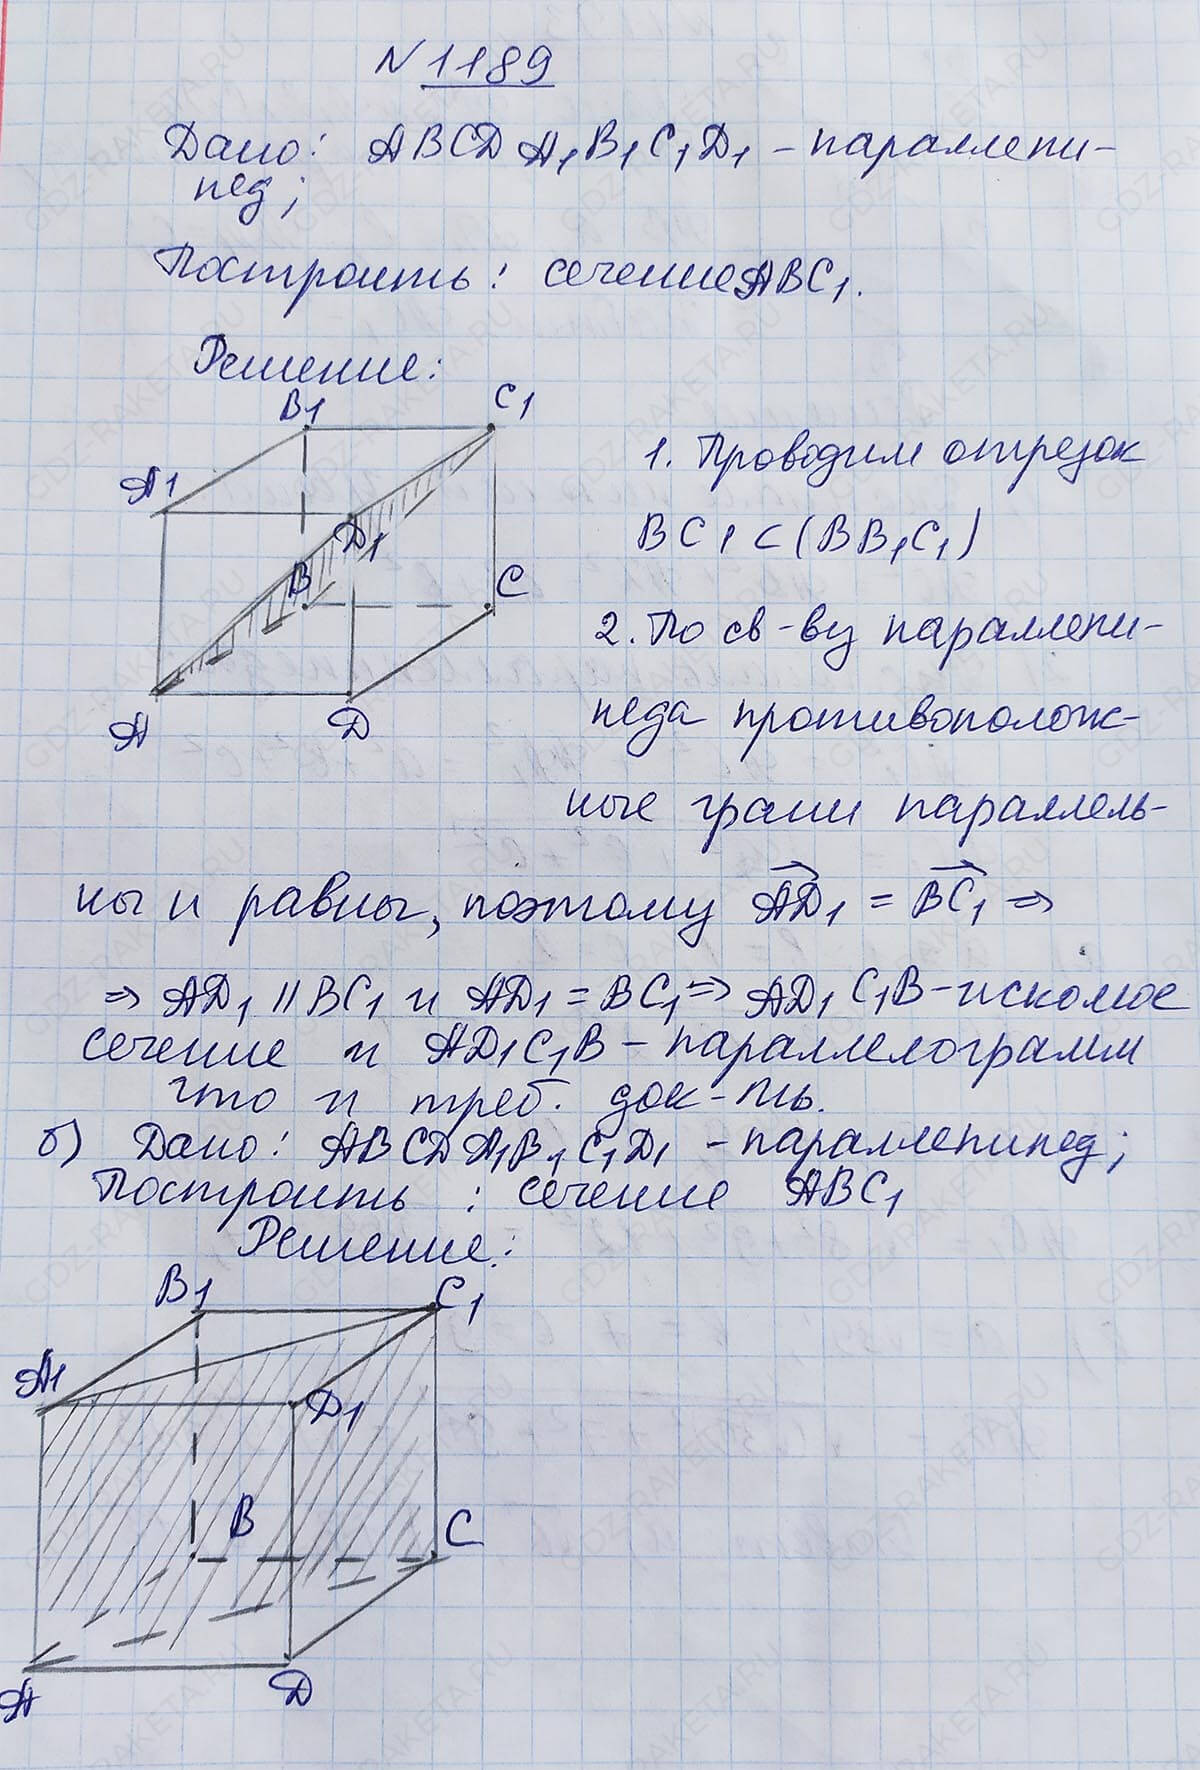 N 1189
Дано: ABCDA₁B₁C₁D₁ – параллепи-
пед;
Построить: сечение ABC₁.
Решение:
B1
C1
A1
D1
B
C
A
D
1. Проводим отрезок
BC1 ⊂ (BB₁C₁)
2. По св-ву параллепи-
педа противополож-
ные грани параллель-
ны и равны, поэтому AD₁ = BC₁ ⇒
⇒ AD₁ || BC₁ и AD₁ = BC₁ ⇒ AD₁C₁B – искомое
сечение и AD₁C₁B – параллелограмм
что и треб. док-ть.
б) Дано: ABCDA₁B₁C₁D₁ – параллепипед;
Построить: сечение ABC₁
Решение:
B1
C1
A1
D1
B
C
A
D
GDZ-RAKETA.RU